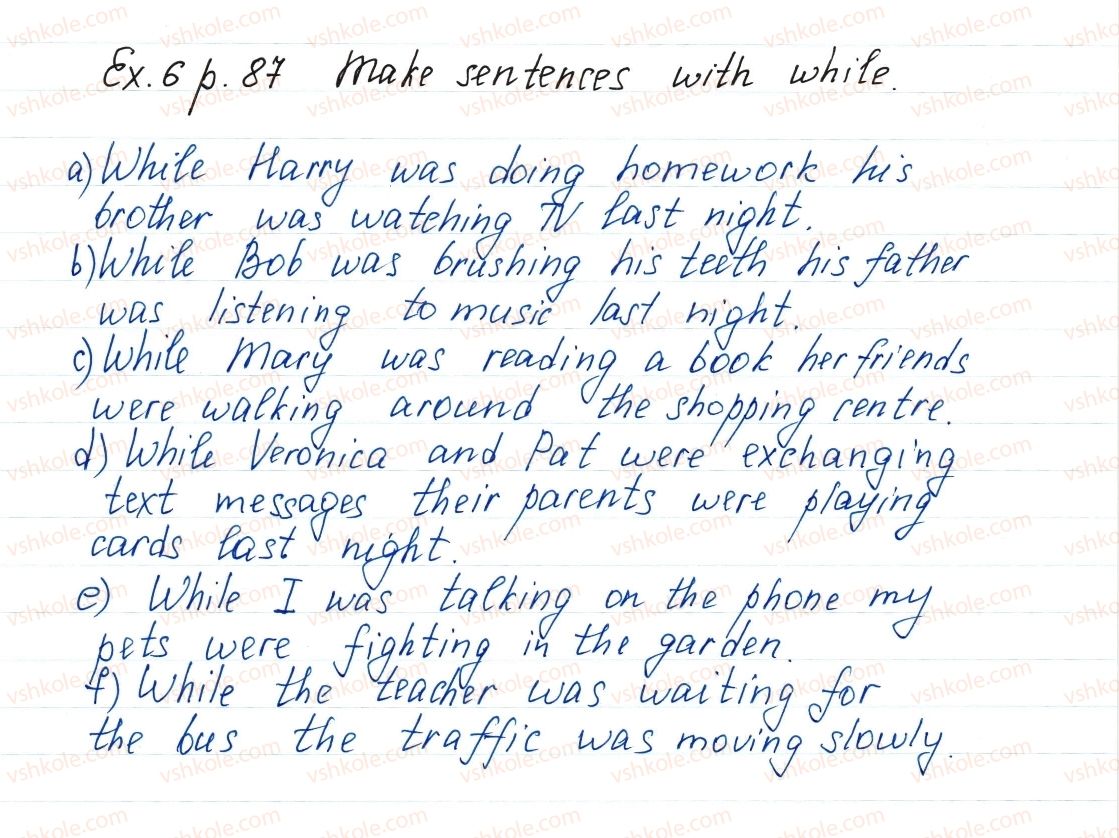 Ex. 6 p. 87 Make sentences with while.
a) While Harry was doing homework his
brother was watching TV last night.
b) While Bob was brushing his teeth his father
was listening to music last night.
c) While Mary was reading a book her friends
were walking around the shopping centre.
d) While Veronica and Pat were exchanging
text messages their parents were playing
cards last night.
e) While I was talking on the phone my
pets were fighting in the garden.
f) While the teacher was waiting for
the bus the traffic was moving slowly.
vshkole.com